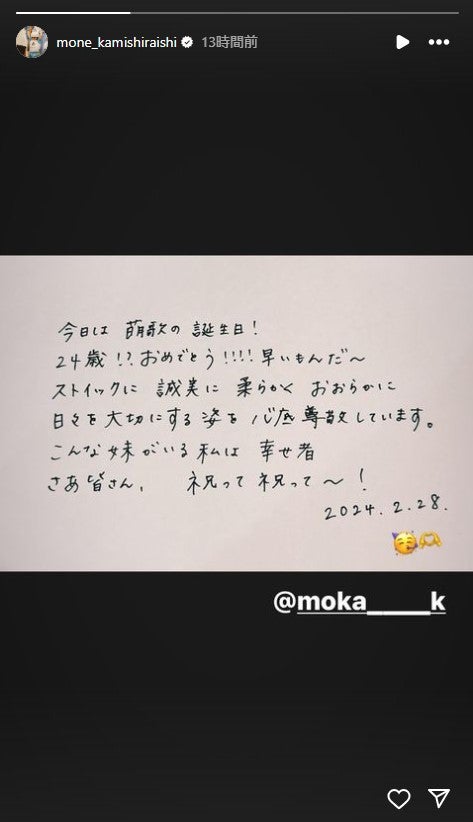 mone_kamishiraishi 13時間前
今日は 萌歌の 誕生日!
24歳!?おめでとう!!!!早いもんだ〜
ストイックに 誠実に 柔らかく おおらかに
日々を大切にする姿を 心底 尊敬しています。
こんな妹がいる私は 幸せ者
さあ皆さん、 祝って祝って〜!
2024.2.28.
🥳🫶
@moka_____k